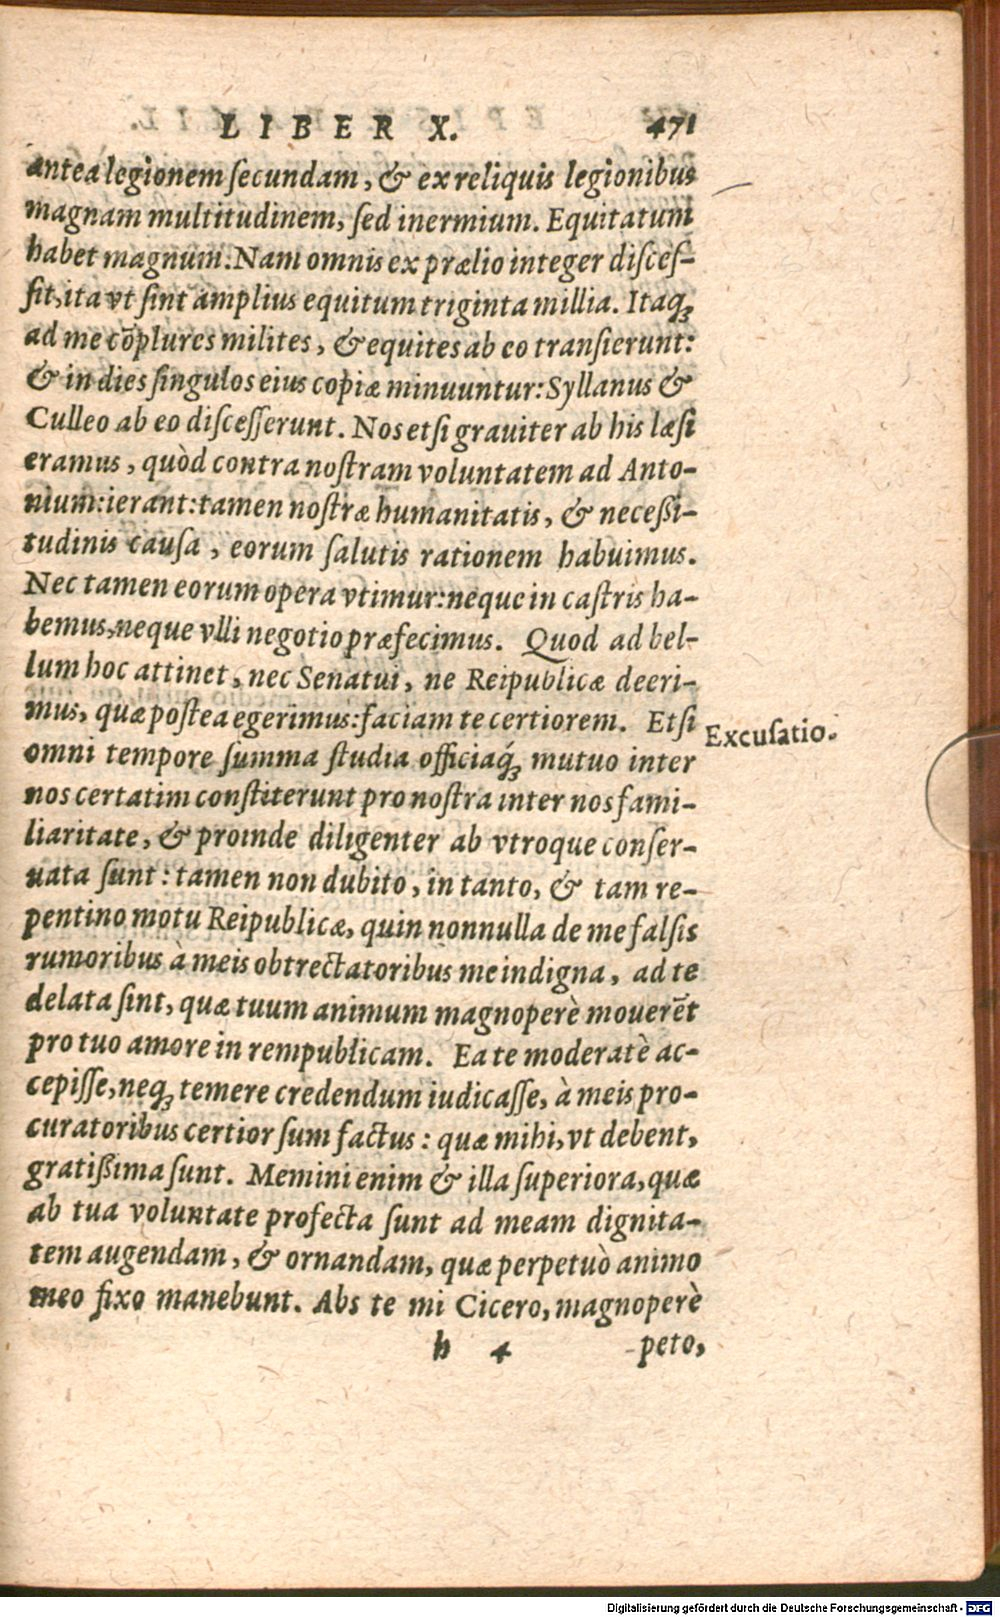 LIBER X. 471
antea legionem ſecundam, & ex reliquis legionibus
magnam multitudinem, ſed inermium. Equitatum
habet magnum. Nam omnis ex prælio integer diſceſ-
ſit, ita vt ſint amplius equitum triginta millia. Itaqꝫ
ad me cõplures milites, & equites ab eo tranſierunt:
& in dies ſingulos eius copiæ minuuntur: Syllanus &
Culleo ab eo diſceſſerunt. Nos etſi grauiter ab his læſi
eramus, quòd contra noſtram voluntatem ad Anto-
nium: ierant: tamen noſtræ humanitatis, & neceßi-
tudinis cauſa, eorum ſalutis rationem habuimus.
Nec tamen eorum opera vtimur: neque in caſtris ha-
bemus, neque vlli negotio præfecimus. Quod ad bel-
lum hoc attinet, nec Senatui, ne Reipublicæ deeri-
mus, quæ poſtea egerimus: faciam te certiorem. Etſi
Excuſatio.
omni tempore ſumma ſtudia officiaq́ꝫ mutuo inter
nos certatim conſtiterunt pro noſtra inter nos fami-
liaritate, & proinde diligenter ab vtroque conſer-
uata ſunt: tamen non dubito, in tanto, & tam re-
pentino motu Reipublicæ, quin nonnulla de me falſis
rumoribus à meis obtrectatoribus me indigna, ad te
delata ſint, quæ tuum animum magnoperè mouerẽt
pro tuo amore in rempublicam. Ea te moderatè ac-
cepiſſe, neqꝫ temere credendum iudicaſſe, à meis pro-
curatoribus certior ſum factus: quæ mihi, vt debent,
gratißima ſunt. Memini enim & illa ſuperiora, quæ
ab tua voluntate profecta ſunt ad meam dignita-
tem augendam, & ornandam, quæ perpetuò animo
meo fixo manebunt. Abs te mi Cicero, magnoperè
h 4 peto,
Digitalisierung gefördert durch die Deutsche Forschungsgemeinschaft - DFG